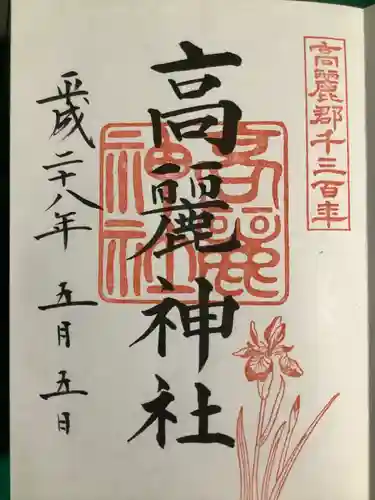 高麗郡千三百年
高麗神社
高麗
神社
平成二十八年 五月五日